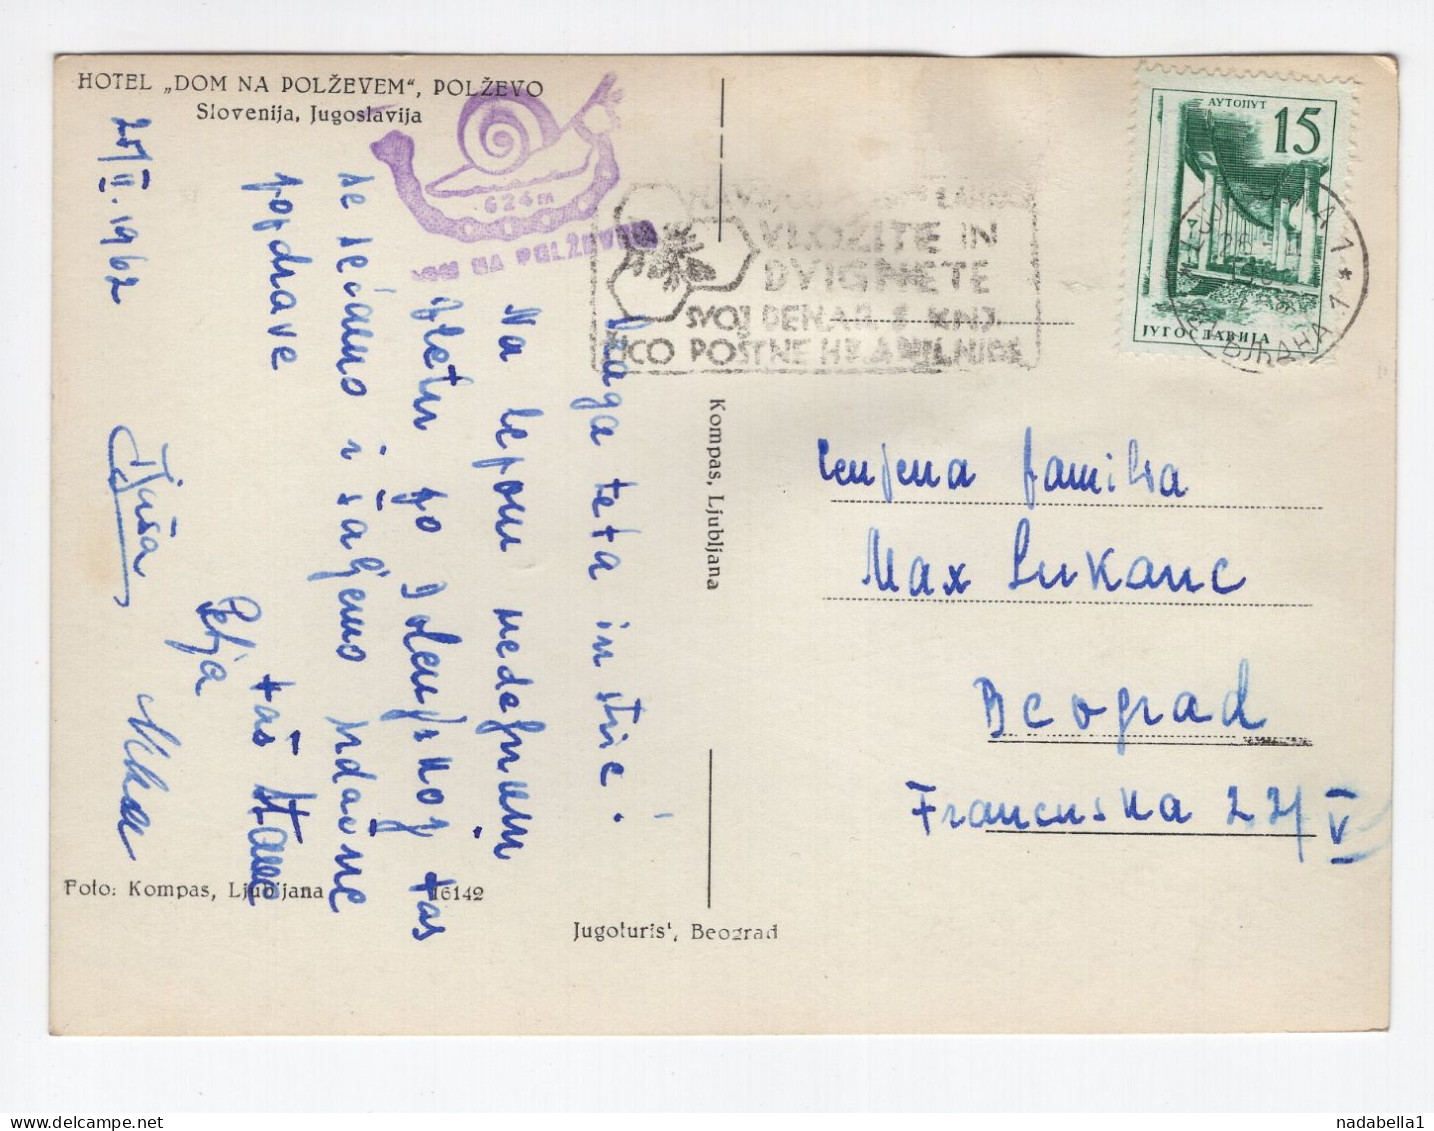 HOTEL „DOM NA POLŽEVEM“, POLŽEVO
Slovenija, Jugoslavija
624 m
DOM NA POLŽEVEM
VLOŽITE IN
DVIGNETE
SVOJ DENAR S KNJ.
ŽICO POŠTNE HRANILNICE
АУТОПУТ
15
ЈУГОСЛАВИЈА
ЉУБЉАНА 1
25/II. 1962
Draga teta in stric!
Na lepem nedeljnem
izletu po Dolenjskoj vas
se sećamo i šaljemo srdačne
pozdrave
vaš Stane
Petja
Kompas, Ljubljana
Cenjena familia
Max Lukanc
Beograd
Francuska 22/V
Foto: Kompas, Ljubljana
16142
Jugoturist, Beograd
nadabella1